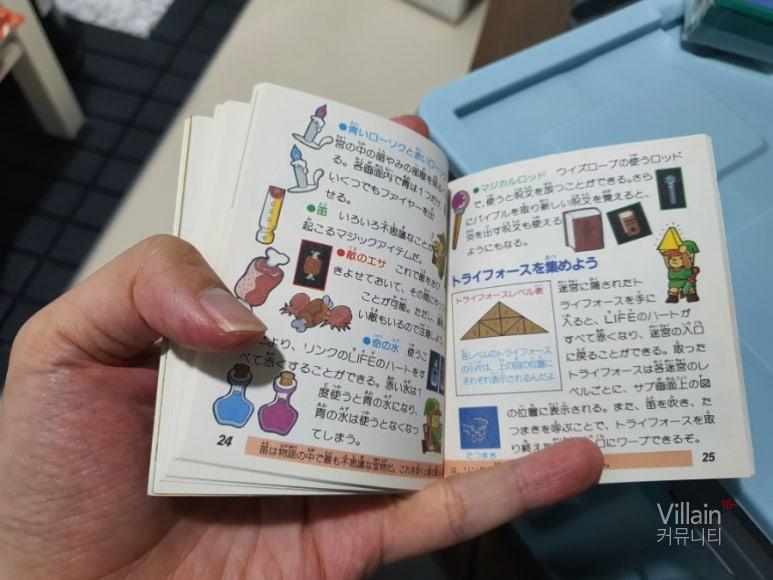 ●青いローソクと赤いローソ
宮の中の暗やみの部屋を明る
る。各画面内で青は1つだけ
いくつでもファイヤーを出
せる。
●笛 いろいろ不思議なことが
起こるマジックアイテムだ。
●敵のエサ これで敵をおび
きよせておいて、その間にやっ
ことが可能。ただし、
い敵もいるので注意しよう
●命の水 使うこ
により、リンクのLIFEのハートをす
べて赤くすることができる。赤い水は1
度使うと青の水になり、
青の水は使うとなくなっ
てしまう。
24
笛は物語の中で最も不思議な宝物だ。これを吹くと
●マジカルロッド ウィズローブの使うロッド
で、使うと呪文を放つことができる。さら
にバイブルを取り新しい呪文を覚えると、
炎を出す呪文も使える
ようにもなる。
トライフォースを集めよう
トライフォースレベル表
各レベルのトライフォース
の小片は、上の図の位置に
それぞれ表示されるんだよ
迷宮に隠されたト
ライフォースを手に
入ると、LIFEのハートが
すべて赤くなり、迷宮の入口
に戻ることができる。取った
トライフォースは各迷宮のレ
ベルごとに、サブ画面上の図
の位置に表示される。また、笛を吹き、た
つまきを呼ぶことで、トライフォースを取
り終えた
口にワープできるぞ。
たつまき
25
Villain 18+
커뮤니티